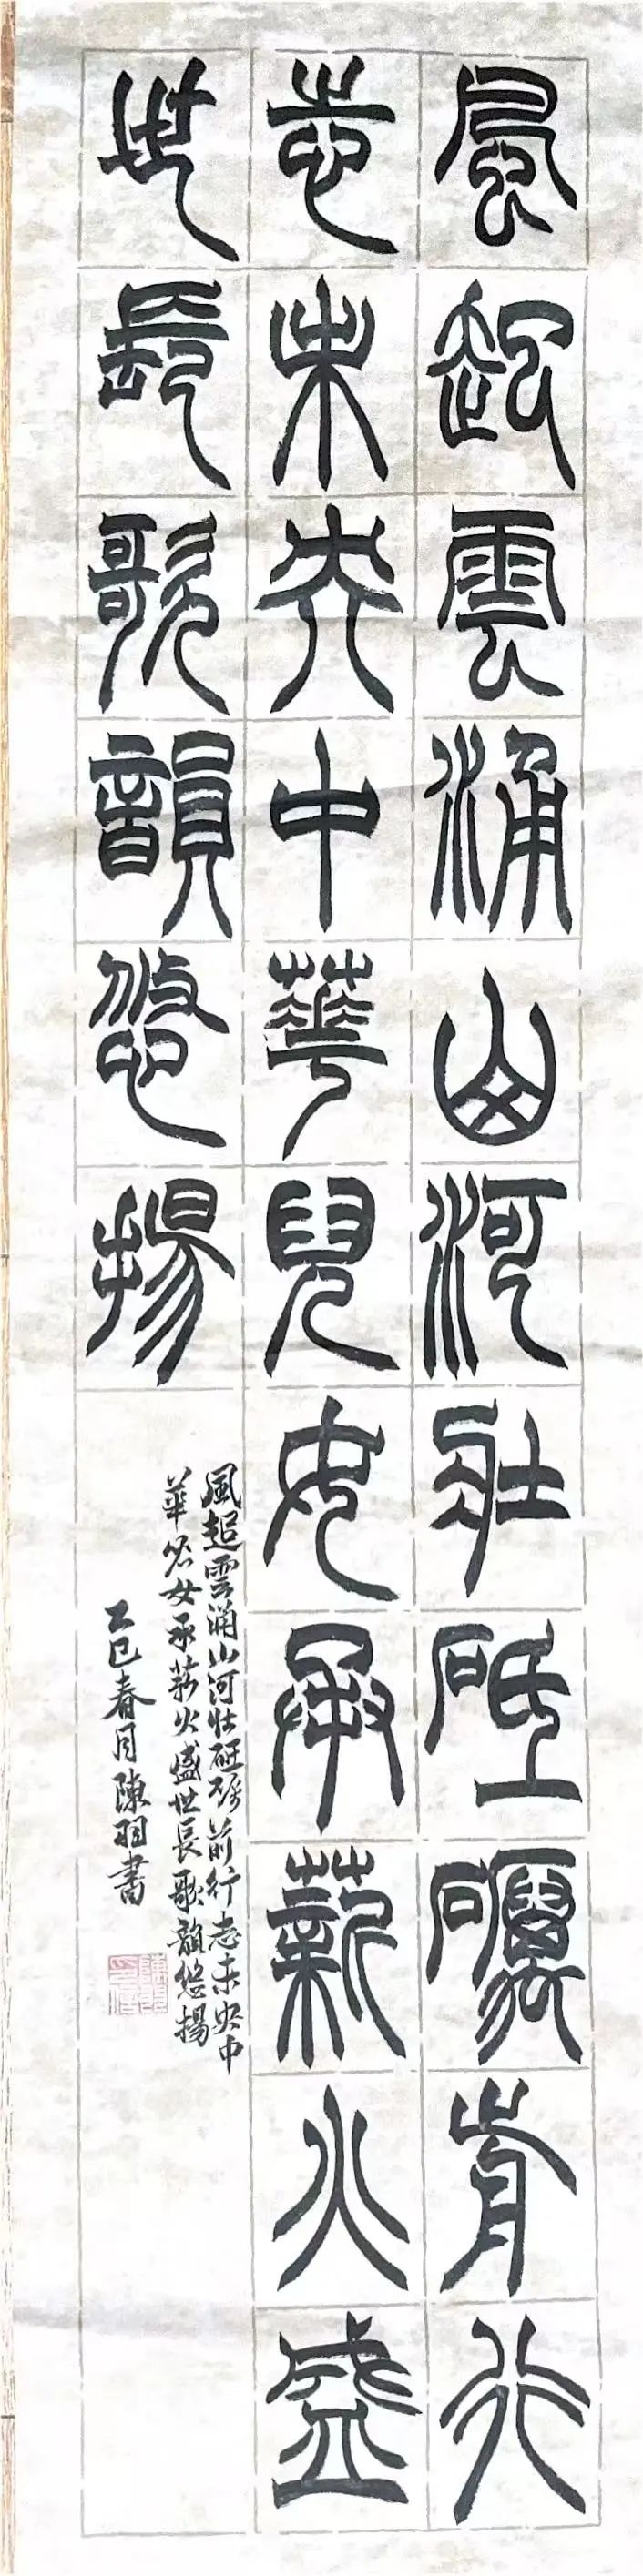 風起雲涌山河壯砥礪前行
志未央中華兒女承薪火盛
世長歌韻悠揚
風起雲涌山河壯砥礪前行志未央中
華兒女承薪火盛世長歌韻悠揚
乙巳春月陳羽書